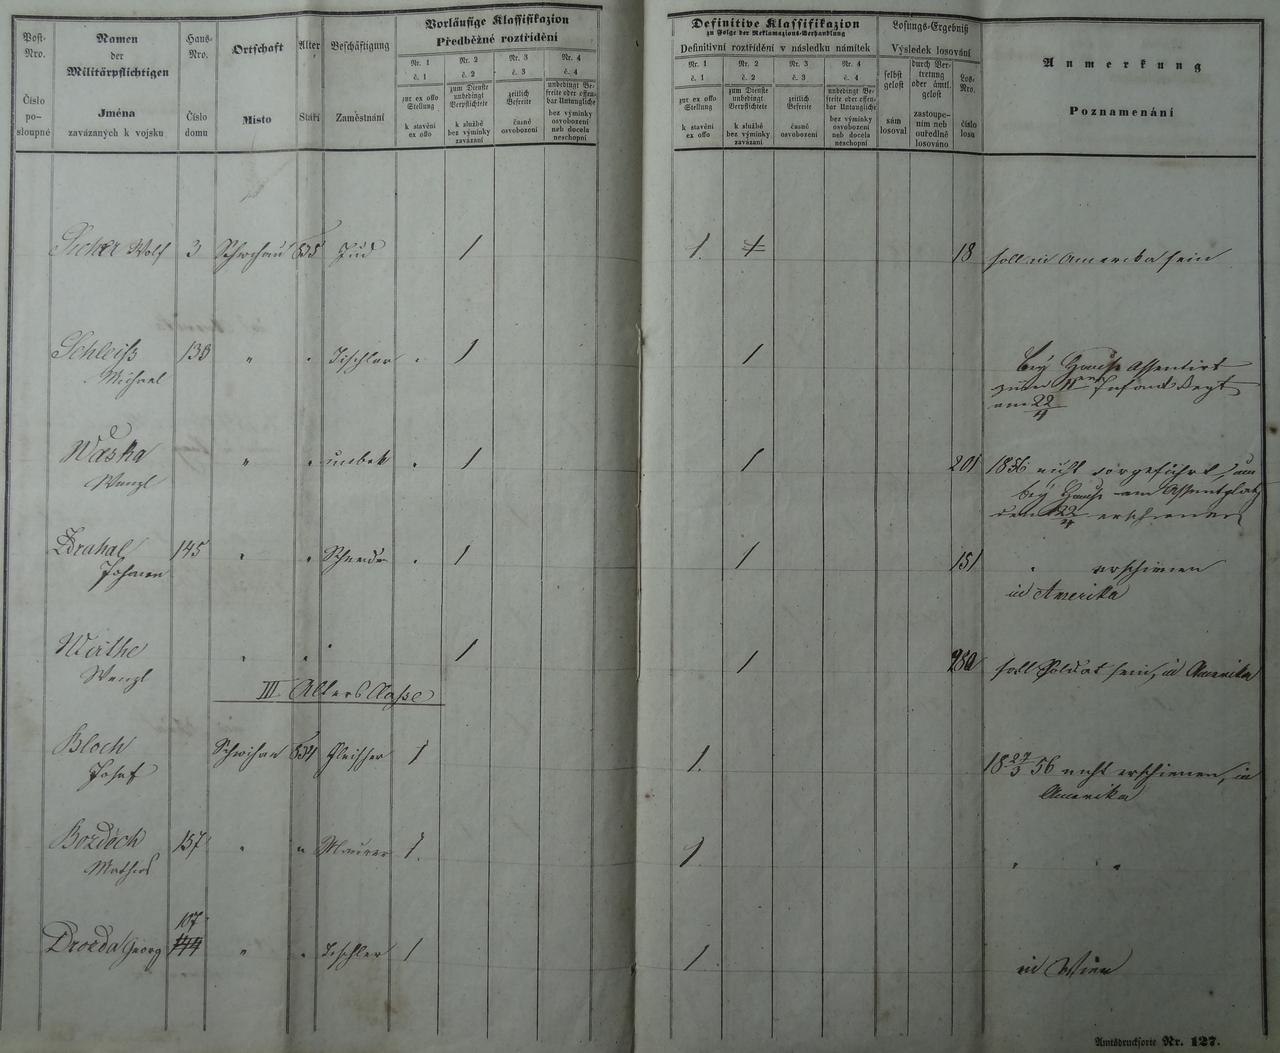 Post-
Nro.
Číslo
po-
sloupné
Namen
der
Militärpflichtigen
Jména
zavázaných k vojsku
Haus-
Nro.
Číslo
domu
Ortschaft
Místo
Alter
Stáří
Beschäftigung
Zaměstnání
Vorläufige Klassifikazion
Předběžné roztřídění
Nr. 1
č. 1
zur ex offo
Stellung
k stavění
ex offo
Nr. 2
č. 2
zum Dienste
unbedingt
Verpflichtete
k službě
bez výminky
zavázaní
Nr. 3
č. 3
zeitlich
Befreite
časně
osvobození
Nr. 4
č. 4
unbedingt Be-
freite oder offen-
bar Untaugliche
bez výminky
osvobození
neb docela
neschopní
Definitive Klassifikazion
zu Folge der Reklamazions-Verhandlung
Definitivní roztřídění v následku námitek
Nr. 1
č. 1
zur ex offo
Stellung
k stavění
ex offo
Nr. 2
č. 2
zum Dienste
unbedingt
Verpflichtete
k službě
bez výminky
zavázaní
Nr. 3
č. 3
zeitlich
Befreite
časně
osvobození
Nr. 4
č. 4
unbedingt Be-
freite oder offen-
bar Untaugliche
bez výminky
osvobození
neb docela
neschopní
Losungs-Ergebniß
Výsledek losování
selbst
gelost
sám
losoval
durch Ver-
tretung
oder ämtl.
gelost
zastoupe-
ním neb
ouředlně
losováno
Los-
Nro.
číslo
losu
Anmerkung
Poznamenání
Wolf 3 Schwihau 835 Jud 1 1. 1 18 soll in Amerika sein
Schleiß 138 " " Tischler " 1 1 bey Hause Assentirt
Michael zum Infant Regt
am 22
Waska " " unbek " 1 1 201 1856 nicht vorgeführt,
Wenzl bey Hause am Assentplatz
den 22 erschienen
Zdrahal 145 " " " 1 1 151 " erschienen
Johann in Amerika
Wirthe " " " 1 1 soll Soldat sein, in Amerika
Wenzl
III Alters Classe
Bloch Schwihau 834 Fleischer 1 1. 18 27/3 56 nicht erschienen, in
Josef Amerika
Bozděch 157 " " Maurer 1. 1 " "
Mathias
107
Drozda Georg 144 " " Tischler 1 1. in Wien
Amtsdrucksorte Nr. 127.